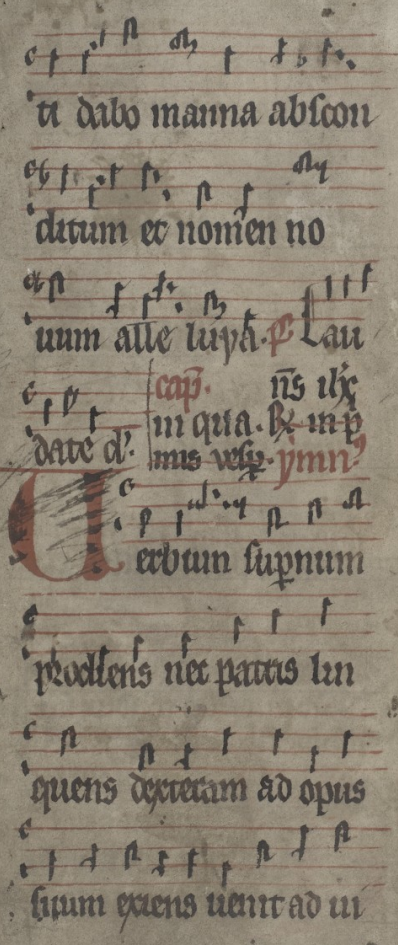 ti dabo manna abscon
ditum et nomen no
uum alle luya. p̄ Lau
date d'.
cap̄. n̄s
in qua. ℟ in p̄
mis vesp̄. ymn'
Uerbum sup̱num
prodiens nec patris lin
quens dexteram ad opus
suum exiens uenit ad ui